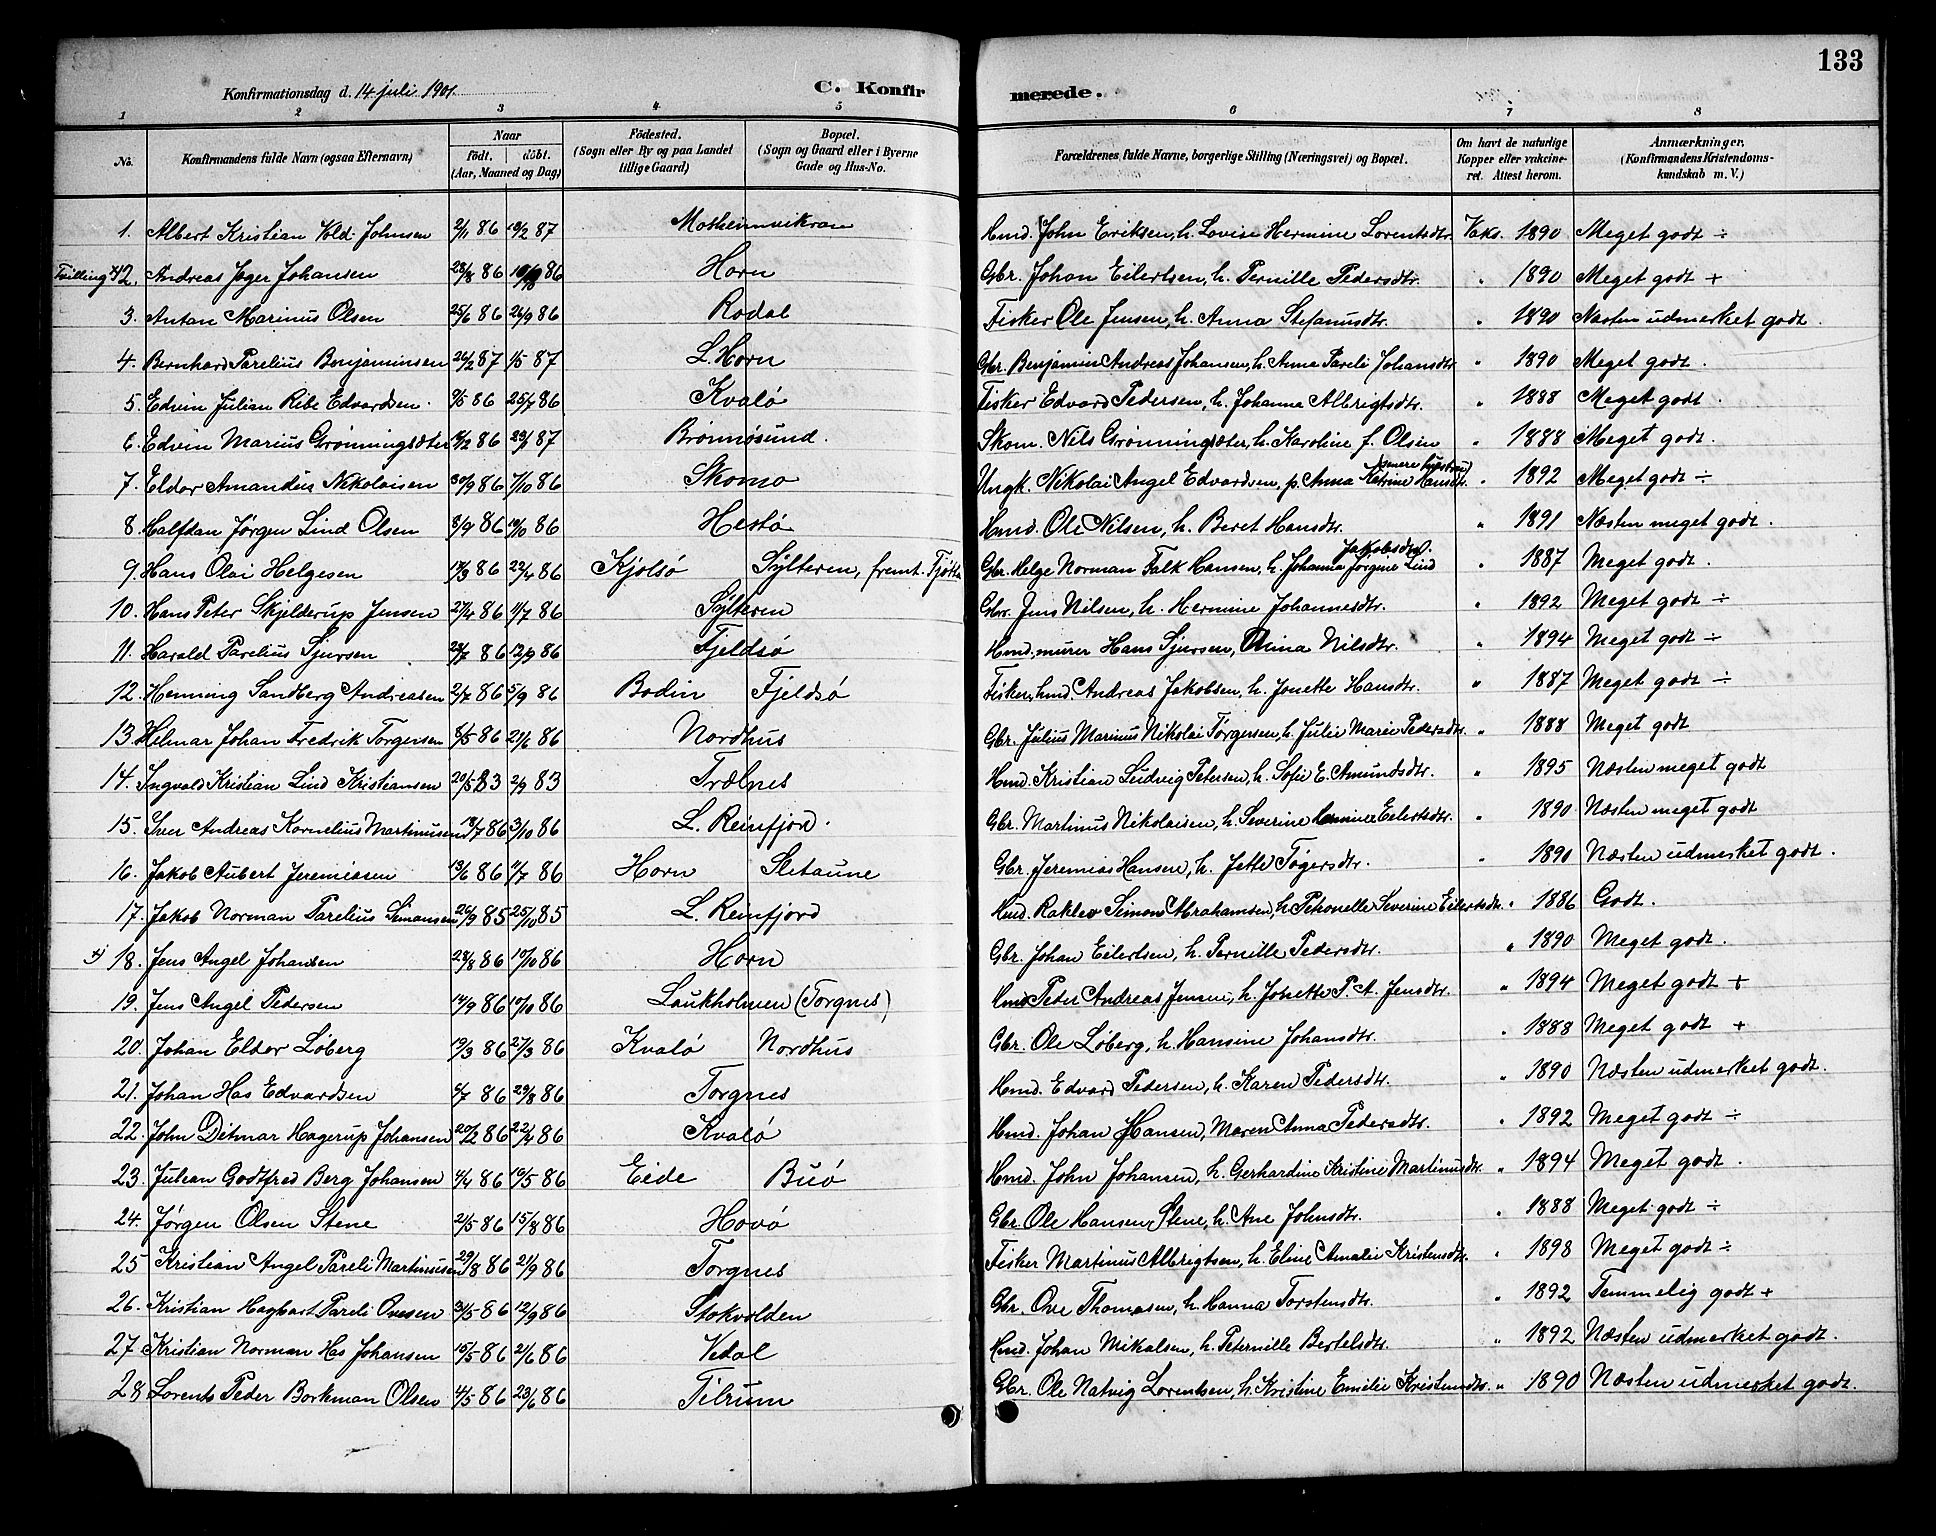 133
Konfirmationsdag d. 14 juli 1901.
C. Konfirmerede.
1 2 3 4 5 6 7 8
No. | Konfirmandens fulde Navn (ogsaa Efternavn) | Naar födt. döbt. (Aar, Maaned og Dag) | Födested. (Sogn eller By og paa Landet tillige Gaard) | Bopæl. (Sogn og Gaard eller i Byerne Gade og Hus-No. | Forældrenes fulde Navne, borgerlige Stilling (Næringsvei) og Bopæl. | Om havt de naturlige Kopper eller vakcineret. Attest herom. | Anmærkninger. (Konfirmandens Kristendomskundskab m. V.)
1. Albert Kristian Vold Johnsen 2/11 86 19/2 87 Mosheimvikran Hmd. John Eriksen, h. Lovise Hermine Lorentsdtr. Vaks. 1890 Meget godt ÷
Tvilling x) 2. Andreas Jager Johansen 28/8 86 10/10 86 Horn Gbr. Johan Eilertsen, h. Pernille Pedersdtr. " 1890 Meget godt +
3. Antan Marinus Olsen 25/6 86 26/9 86 Rodal Fisker Ole Jensen, h. Anna Stefanusdtr. " 1890 Næsten udmerket godt.
4. Bernhard Parelius Benjaminsen 26/2 87 1/5 87 L. Horn Gbr. Benjamin Andreas Johansen, h. Anna Pareli Johansdtr " 1890 Meget godt.
5. Edvin Julian Ribe Edvardsen 9/5 86 25/7 86 Kvalø Fisker Edvard Pedersen, h. Johanna Albrigtsdtr. " 1888 Meget godt.
6. Edvin Marius Grønningsæter 18/12 86 29/1 87 Brønnøsund. Skom. Nils Grønningsæter, h. Karoline f. Olsen " 1888 Meget godt.
7. Eldor Amandus Nikolaisen 30/9 86 7/10 86 Skomo Ungk. Nikolai Angel Edvardsen, p. Anna Katrine Hansdtr. (senere hustru) " 1892 Meget godt ÷
8. Halfdan Jørgen Lind Olsen 8/9 86 10/10 86 Hestø Hmd. Ole Nilsen, h. Beret Hansdtr. " 1891 Næsten meget godt.
9. Hans Olai Helgesen 17/3 86 22/4 86 Kjølsø Sylteren, fremt. Tjøtta Gbr. Helge Norman Falk Hansen, h. Johanna Jørgine Lind Jakobsdtr. " 1887 Meget godt.
10. Hans Peter Skjelderup Jensen 27/4 86 11/7 86 Sylteren Gbr. Jens Nilsen, h. Hermine Johannesdtr. " 1892 Meget godt ÷
11. Harald Parelius Sjursen 28/7 86 12/9 86 Fjeldsø Hmd. murer Hans Sjursen, Anna Nilsdtr. " 1894 Meget godt ÷
12. Henning Sandberg Andreasen 2/7 86 5/9 86 Bodin Fjeldsø Fisker, hmd. Andreas Jakobsen, h. Jonette Hansdtr. " 1887 Meget godt ÷
13. Helmar Johan Fredrik Torgersen 8/5 86 21/6 86 Nordhus Gbr. Julius Marinus Nikolai Törgersen, h. Julie Marie Pedersdtr. " 1888 Meget godt
14. Ingvald Kristian Lind Kristiansen 20/5 83 2/9 83 Trælnes Hmd. Kristian Ludvig Petersen, h. Sofie E. Amundsdtr. " 1895 Næsten meget godt
15. Iver Andreas Kornelius Martinusen 18/7 86 3/10 86 L. Reinfjord. Gbr. Martinus Nikolaisen, h. Severine Eilertsdtr. " 1890 Næsten meget godt
16. Jakob Aubert Jeremiasen 13/6 86 11/7 86 Horn Sletaune Gbr. Jeremias Hansen, h. Jette Tøgersdtr. " 1890 Næsten udmerket godt.
17. Jakob Norman Parelius Simonsen 26/9 85 25/10 85 L. Reinfjord Hmd. Raklev Simon Abrahamsen, h. Petronelle Severine Eilertsdtr. " 1886 Godt.
x) 18. Jens Angel Johansen 28/8 86 10/10 86 Horn Gbr. Johan Eilertsen, h. Pernille Pedersdtr. " 1890 Meget godt.
19. Jens Angel Pedersen 14/9 86 10/10 86 Laukholmen (Torgnes) Hmd Peder Andreas Jensen, h. Jonette P. A. Jensdtr. " 1894 Meget godt +
20. Johan Eldor Løberg 19/3 86 27/3 86 Kvalø Nordhus Gbr. Ole Løberg, h. Hansine Johansdtr. " 1888 Meget godt +
21. Johan Has Edvardsen 4/7 86 29/8 86 Torgnes Hmd. Edvard Pedersen, h. Karen Pedersdtr. " 1890 Næsten udmerket godt.
22. John Ditmar Hagerup Johansen 20/2 86 22/4 86 Kvalø Hmd. Johan Hansen, Maren Anna Pedersdtr. " 1892 Meget godt ÷
23. Julian Godtfred Berg Johansen 4/4 86 10/5 86 Eide Buø Hmd. John Johansen, h. Gerhardine Kristine Martinusdtr. " 1894 Meget godt.
24. Jørgen Olsen Stene 2/5 86 15/8 86 Hovø Gbr. Ole Hansen Stene, h. Ane Johnsdtr. " 1888 Meget godt ÷
25 Kristian Angel Pareli Martinusen 29/8 86 21/9 86 Torgnes Fisker Martinus Albrigtsen, h. Eline Amalie Kristensdtr. " 1898 Meget godt ÷
26. Kristian Hagbart Pareli Ovesen 31/5 86 12/9 86 Stokvolden Gbr. Ove Thomasen, h. Hanna Torstensdtr. " 1892 Temmelig godt +
27. Kristian Norman Has Johansen 10/5 86 21/6 86 Vedal Hmd. Johan Mikalsen, h. Peternille Bertelsdtr. " 1892 Næsten udmerket godt.
28 Lorents Peder Borkman Olsen 4/5 86 23/6 86 Tilrum Gbr. Ole Natvig Lorentsen, h. Kristine Emilie Kristensdtr. " 1890 Næsten udmerket godt.